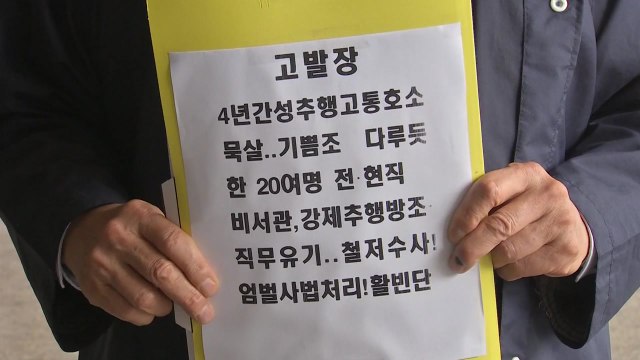 고발장
4년간성추행고통호소
묵살..기쁨조 다루듯
한 20여명 전·현직
비서관,강제추행방조·
직무유기..철저수사!
엄벌사법처리!활빈단